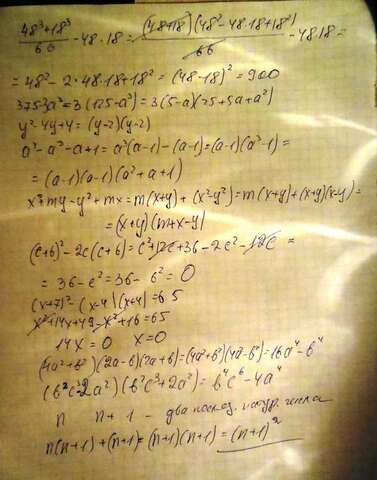 (48³+18³)/66 - 48·18 = (48+18)(48²-48·18+18²)/66 - 48·18 =
= 48² - 2·48·18 + 18² = (48-18)² = 900
375-3a³ = 3(125-a³) = 3(5-a)(25+5a+a²)
y²-4y+4 = (y-2)(y-2)
a³-a³-a+1 = a³(a-1)-(a-1) = (a-1)(a³-1) =
= (a-1)(a-1)(a²+a+1)
x²+my-y²+mx = m(x+y)+(x²-y²) = m(x+y)+(x+y)(x-y) =
= (x+y)(m+x-y)
(c+6)²-2c(c+6) = c²+12c+36-2c²-12c =
= 36-c² = 36-6² = 0
(x+7)²-(x-4)(x+4) = 65
x²+14x+49-x²+16 = 65
14x = 0 x = 0
(4a²+b²)(2a-b)(2a+b) = (4a²+b²)(4a²-b²) = 16a⁴-b⁴
(b²c³-2a²)(b²c³+2a²) = b⁴c⁶-4a⁴
n n+1 - два послед. натур. числа
n(n+1)+(n+1) = (n+1)(n+1) = (n+1)²